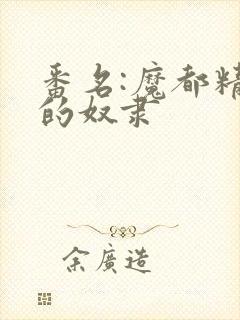 番名:魔都精
的奴隶
余廣造